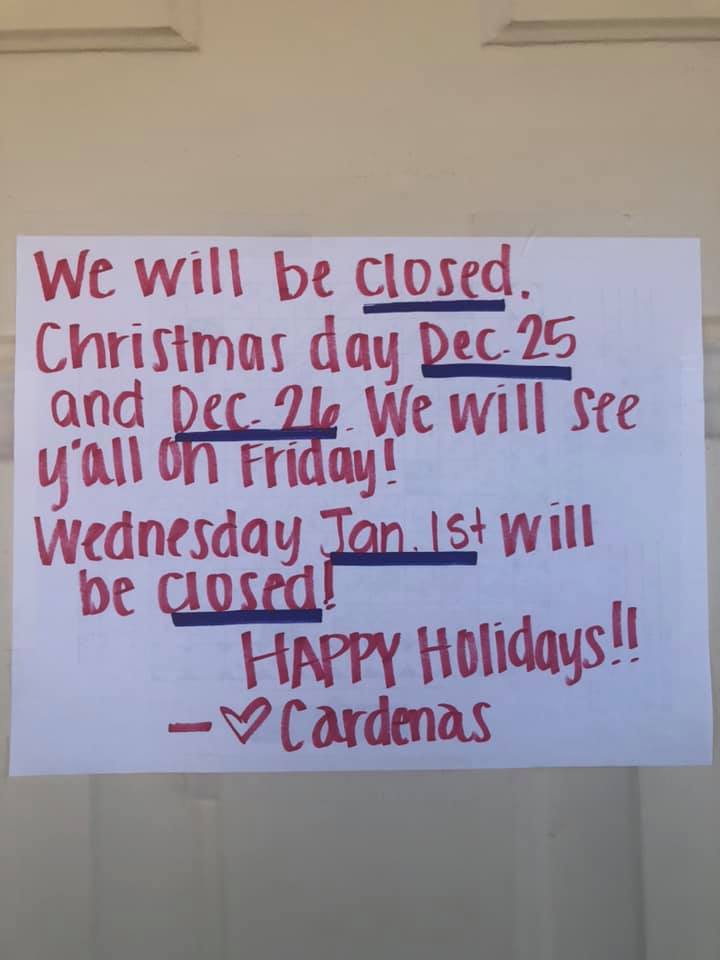 We will be closed.
Christmas day Dec. 25
and Dec. 26. We will see
y'all on Friday!
Wednesday Jan. 1st will
be closed!
HAPPY Holidays!!
- ♡ Cardenas